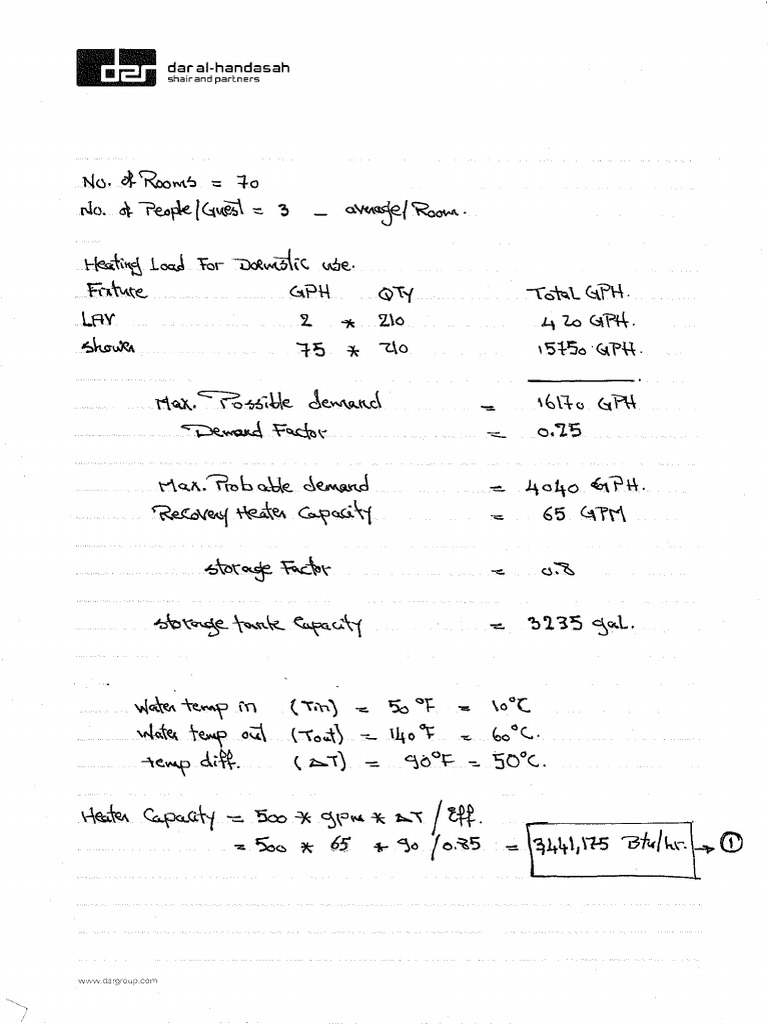 dar
dar al-handasah
shair and partners
No. of Rooms = 70
No. of People/Guest = 3 – average/Room.
Heating Load For Domestic use.
Fixture GPH QTY Total GPH.
LAV 2 * 210 420 GPH.
Shower 75 * 210 15750 GPH.
Max. Possible demand = 16170 GPH
Demand Factor = 0.25
Max. Probable demand = 4040 GPH.
Recovery Heater Capacity = 65 GPM
Storage Factor = 0.8
Storage tank Capacity = 3235 gal.
Water temp in (Tin) = 50°F = 10°C
Water temp out (Tout) = 140°F = 60°C.
temp diff. (ΔT) = 90°F = 50°C.
Heater Capacity = 500 * gpm * ΔT / Eff.
= 500 * 65 * 90 / 0.85 = 3,441,175 Btu/hr. → ①
www.dargroup.com